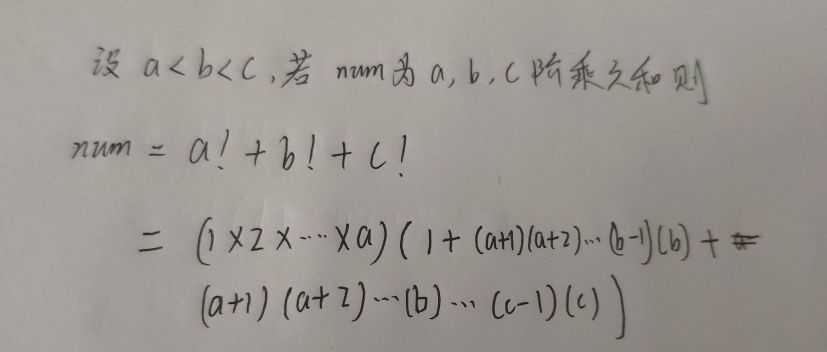 设 a<b<c,若 num为 a,b,c 阶乘之和则
num = a! + b! + c!
= (1×2×⋯×a)(1+(a+1)(a+2)⋯(b-1)(b)+
(a+1)(a+2)⋯(b)⋯(c-1)(c))